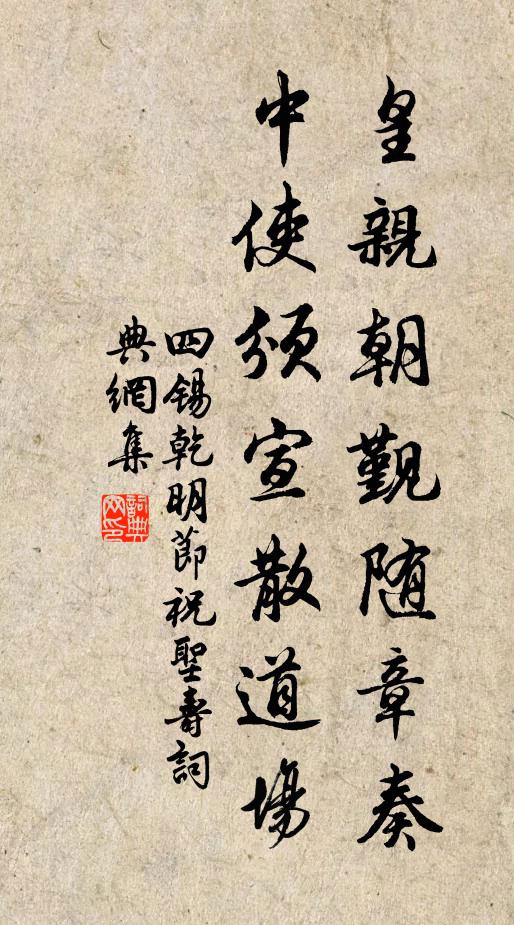 皇親朝覲随章奏
中使頒宣散道場
四錫乾明節祝聖壽詞
典網集
詞典
网印